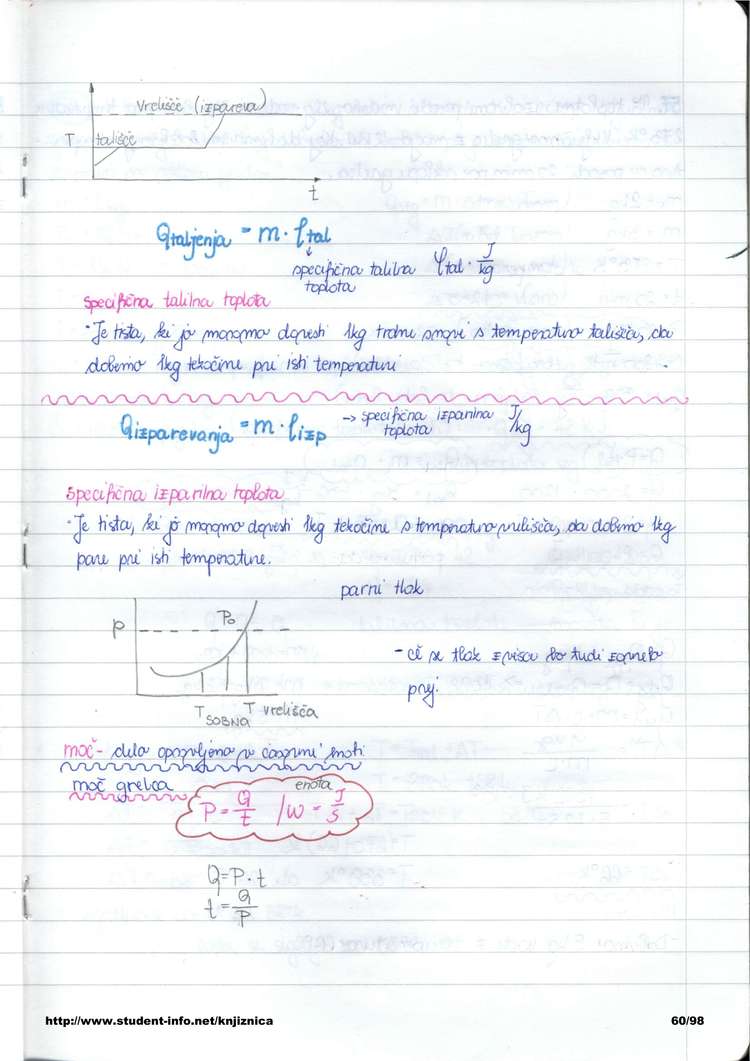 Vrelišče (izpareva)
T
tališče
t
Qtaljenja = m · ltal
specifična talilna
toplota
ltal · J/kg
specifična talilna toplota
· Je tista, ki jo moramo dovesti 1kg trdne snovi s temperaturo tališča, da
dobimo 1kg tekočine pri isti temperaturi
Qizparevanja = m · lizp
→ specifična izparilna
toplota
J/kg
specifična izparilna toplota
· Je tista, ki jo moramo dovesti 1kg tekočine s temperaturo vrelišča, da dobimo 1kg
pare pri isti temperature.
parni tlak
P
Po
T SOBNA
T vrelišča
- če se tlak zviša bo tudi
prej.
moč - dela opravljena v časovni enoti
moč grelca
enota
P = Q/t /W = J/s
Q = P · t
t = Q/P
http://www.student-info.net/knjiznica
60/98